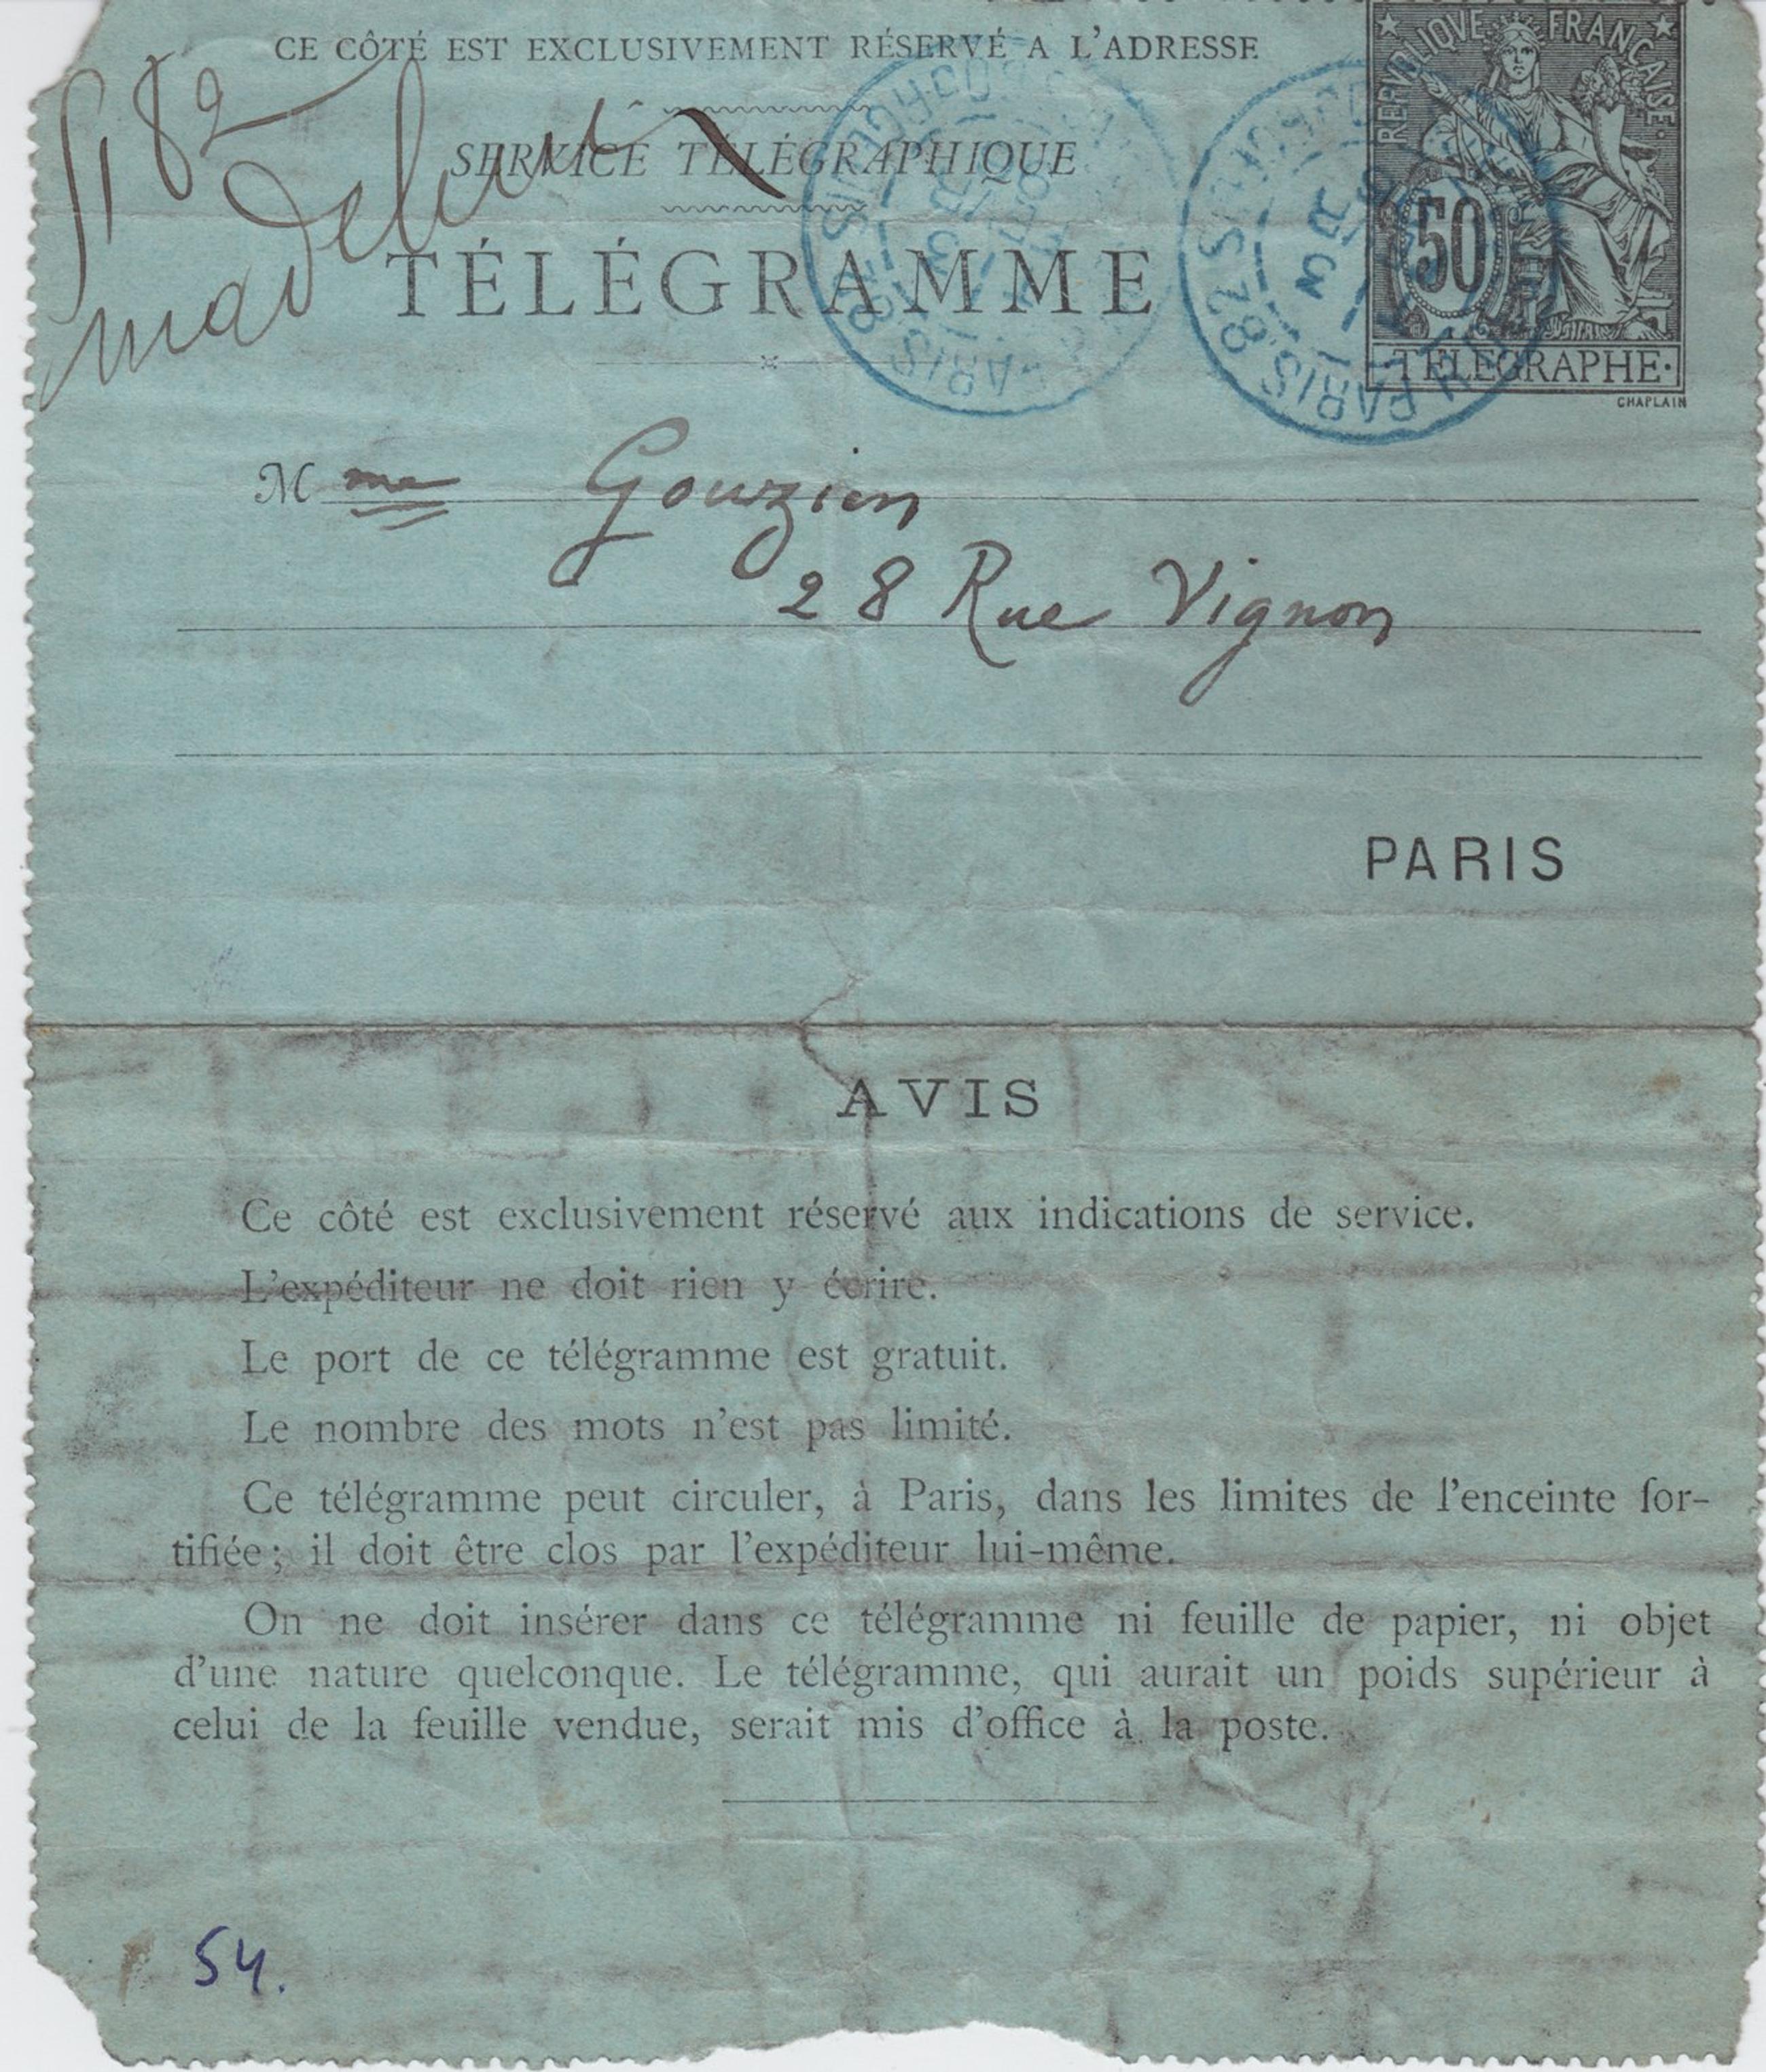 CE CÔTÉ EST EXCLUSIVEMENT RÉSERVÉ A L'ADRESSE
RÉPVBLIQVE FRANÇAISE
SERVICE TÉLÉGRAPHIQUE
TÉLÉGRAMME
50
TÉLÉGRAPHE
CHAPLAIN
PARIS 82
PARIS 82
Mme Gouzien
28 Rue Vignon
PARIS
AVIS
Ce côté est exclusivement réservé aux indications de service.
L'expéditeur ne doit rien y écrire.
Le port de ce télégramme est gratuit.
Le nombre des mots n'est pas limité.
Ce télégramme peut circuler, à Paris, dans les limites de l'enceinte for-
tifiée; il doit être clos par l'expéditeur lui-même.
On ne doit insérer dans ce télégramme ni feuille de papier, ni objet
d'une nature quelconque. Le télégramme, qui aurait un poids supérieur à
celui de la feuille vendue, serait mis d'office à la poste.
54.